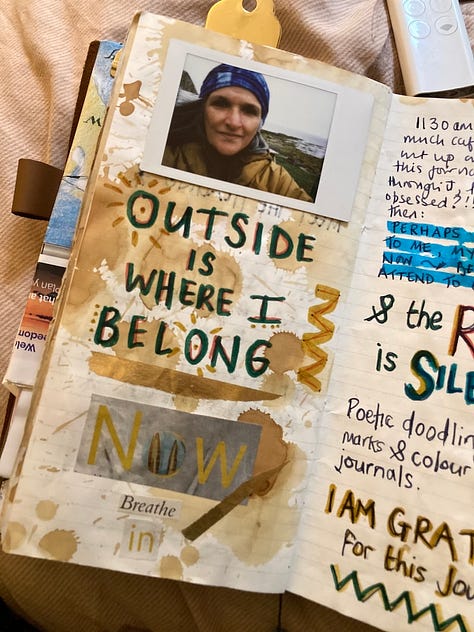 OUTSIDE
IS
WHERE I
BELONG
NOW
Breathe
in
1130 am
much
this journal
through it,
obsessed?!!
then:
PERHAPS
TO ME, MY
NOW
ATTEND TO
& the
is SIL
Poetic doodlin
marks & colour
journals.
I AM GRAT
for this Jou